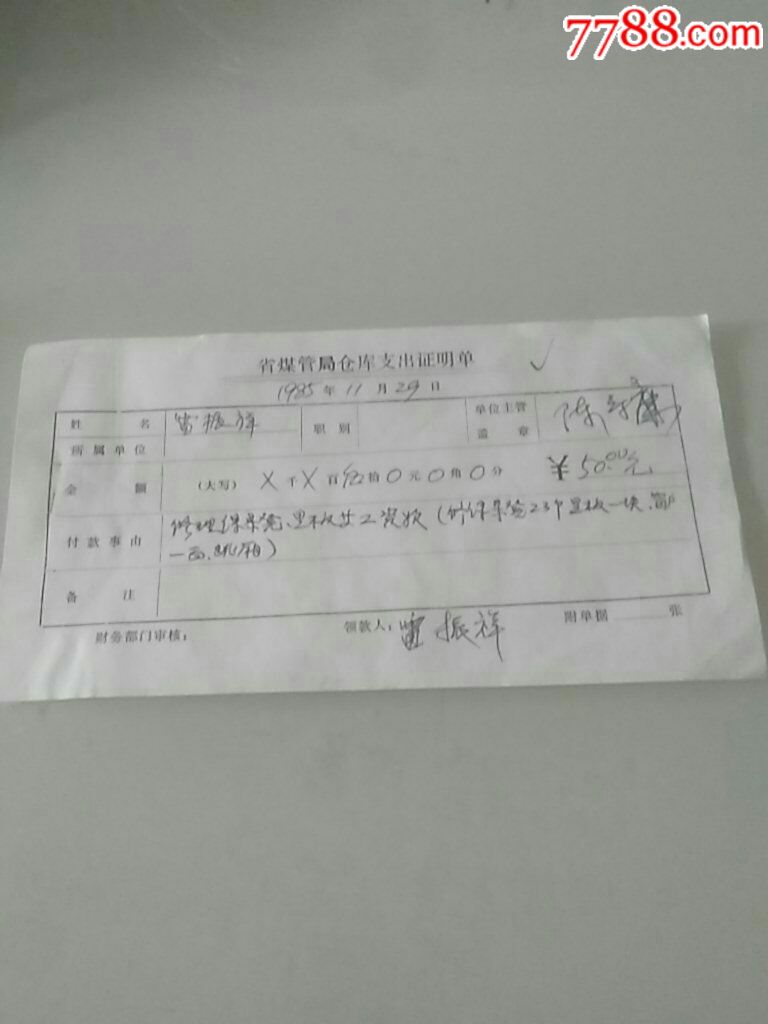 7788.com
省煤管局仓库支出证明单
1985年11月29日
姓名 雷振祥 职别 单位主管盖章 陈
所属单位
金额 (大写) X千X百伍拾0元0角0分 ¥50.00元
付款事由 修理保险、黑板廿工资款(修保险23个黑板一块、窗户
一
备注
财务部门审核: 领款人: 雷振祥 附单据 张